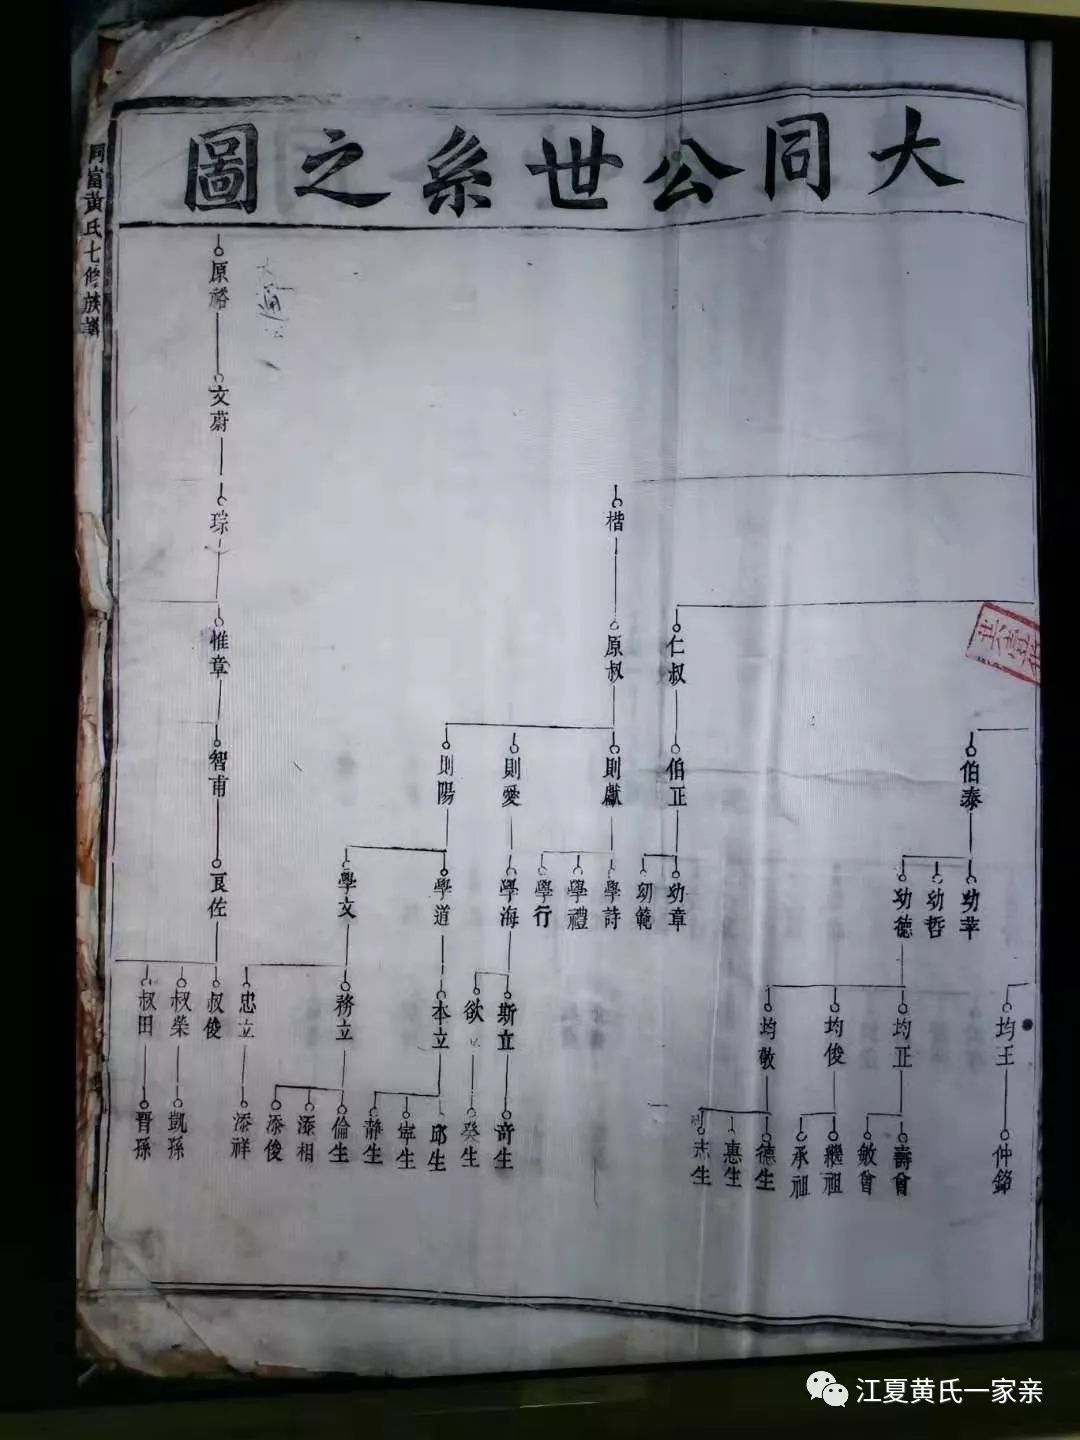 大同公世系之圖
同富黃氏七修族譜
楷
原裕
文蔚
琮
惟章
智甫
良佐
叔俊
叔榮
叔田
凱孫
晋孫
仁叔
原叔
伯泰
伯正
則獻
則愛
則陽
幼莘
幼哲
幼德
幼章
幼範
學詩
學禮
學行
學海
學道
學文
均王
均正
均俊
均敬
斯立
欲立
本立
務立
忠立
仲銘
壽曾
敏曾
繼祖
承祖
德生
惠生
志生
奇生
癸生
邱生
宰生
静生
倫生
添相
添俊
添祥
江夏黄氏一家亲